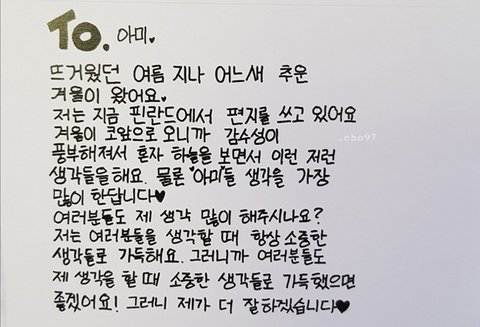 To. 아미♥
뜨거웠던 여름 지나 어느새 추운
겨울이 왔어요♥
저는 지금 핀란드에서 편지를 쓰고 있어요
겨울이 코앞으로 오니까 감수성이
_cho97
풍부해져서 혼자 하늘을 보면서 이런 저런
생각들을 해요. 물론 "아미"들 생각을 가장
많이 한답니다♥
여러분들도 제 생각 많이 해주시나요?
저는 여러분들을 생각할 때 항상 소중한
생각들로 가득해요. 그러니까 여러분들도
제 생각을 할 때 소중한 생각들로 가득했으면
좋겠어요! 그러니 제가 더 잘하겠습니다♥